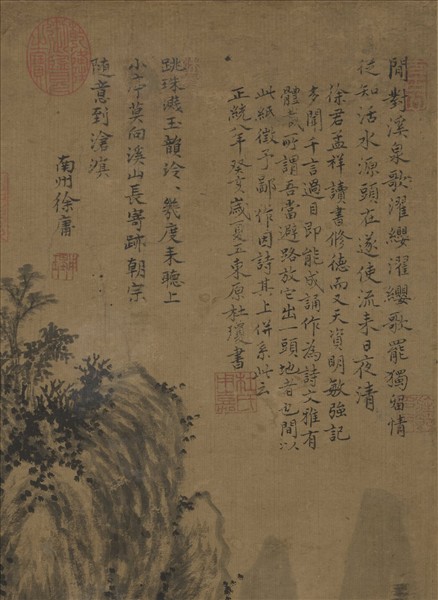 閒對溪泉歌濯纓濯纓歌罷獨留情
從知活水源頭在遂使流來日夜清
徐君孟祥讀書修德而又天資明敏強記
多聞千言過目即能成誦作為詩文雅有
體裁所謂吾當避路放它出一頭地者也間以
此紙徵予鄙作因詩其上併系此云
正統八年癸亥歲夏五東原杜瓊書
跳珠濺玉韻泠、幾度來聽上
小亭莫向溪山長寄跡朝宗
隨意到滄溟
南州徐庸
杜氏